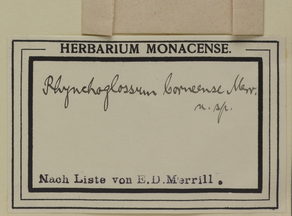 HERBARIUM MONACENSE.
Rhynchoglossum borneense Merr.
n. sp.
Nach Liste von E.D.Merrill.